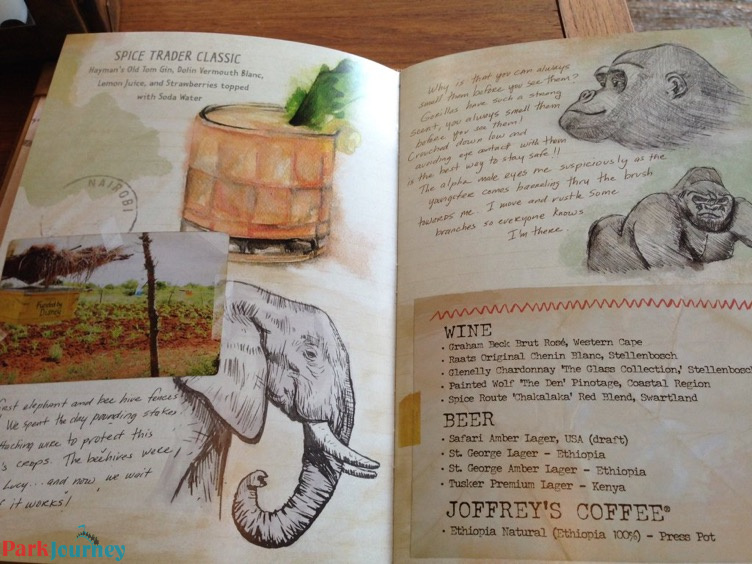 SPICE TRADER CLASSIC
Hayman's Old Tom Gin, Dolin Vermouth Blanc,
Lemon Juice, and Strawberries topped
with Soda Water
NAIROBI
Funded by
Disney
first elephant and bee hive fences
! We spent the day pounding stakes
attaching wire to protect this
's crops. The beehives were,
Lucy...and now, we wait
if it works!
Why is that you can always
smell them before you see them?
Gorillas have such a strong
scent, you always smell them
before you see them!
Crouched down low and
avoiding eye contact with them
is the best way to stay safe!!
The alpha male eyes me suspiciously as the
youngster comes barreling thru the brush
towards me. I move and rustle some
branches so everyone knows
I'm there.
WINE
· Graham Beck Brut Rosé, Western Cape
· Raats Original Chenin Blanc, Stellenbosch
· Glenelly Chardonnay 'The Glass Collection,' Stellenbosch
· Painted Wolf 'The Den' Pinotage, Coastal Region
· Spice Route 'Chakalaka' Red Blend, Swartland
BEER
· Safari Amber Lager, USA (draft)
· St. George Lager - Ethiopia
· St. George Amber Lager - Ethiopia
· Tusker Premium Lager - Kenya
JOFFREY'S COFFEE®
· Ethiopia Natural (Ethiopia 100%) - Press Pot
ParkJourney